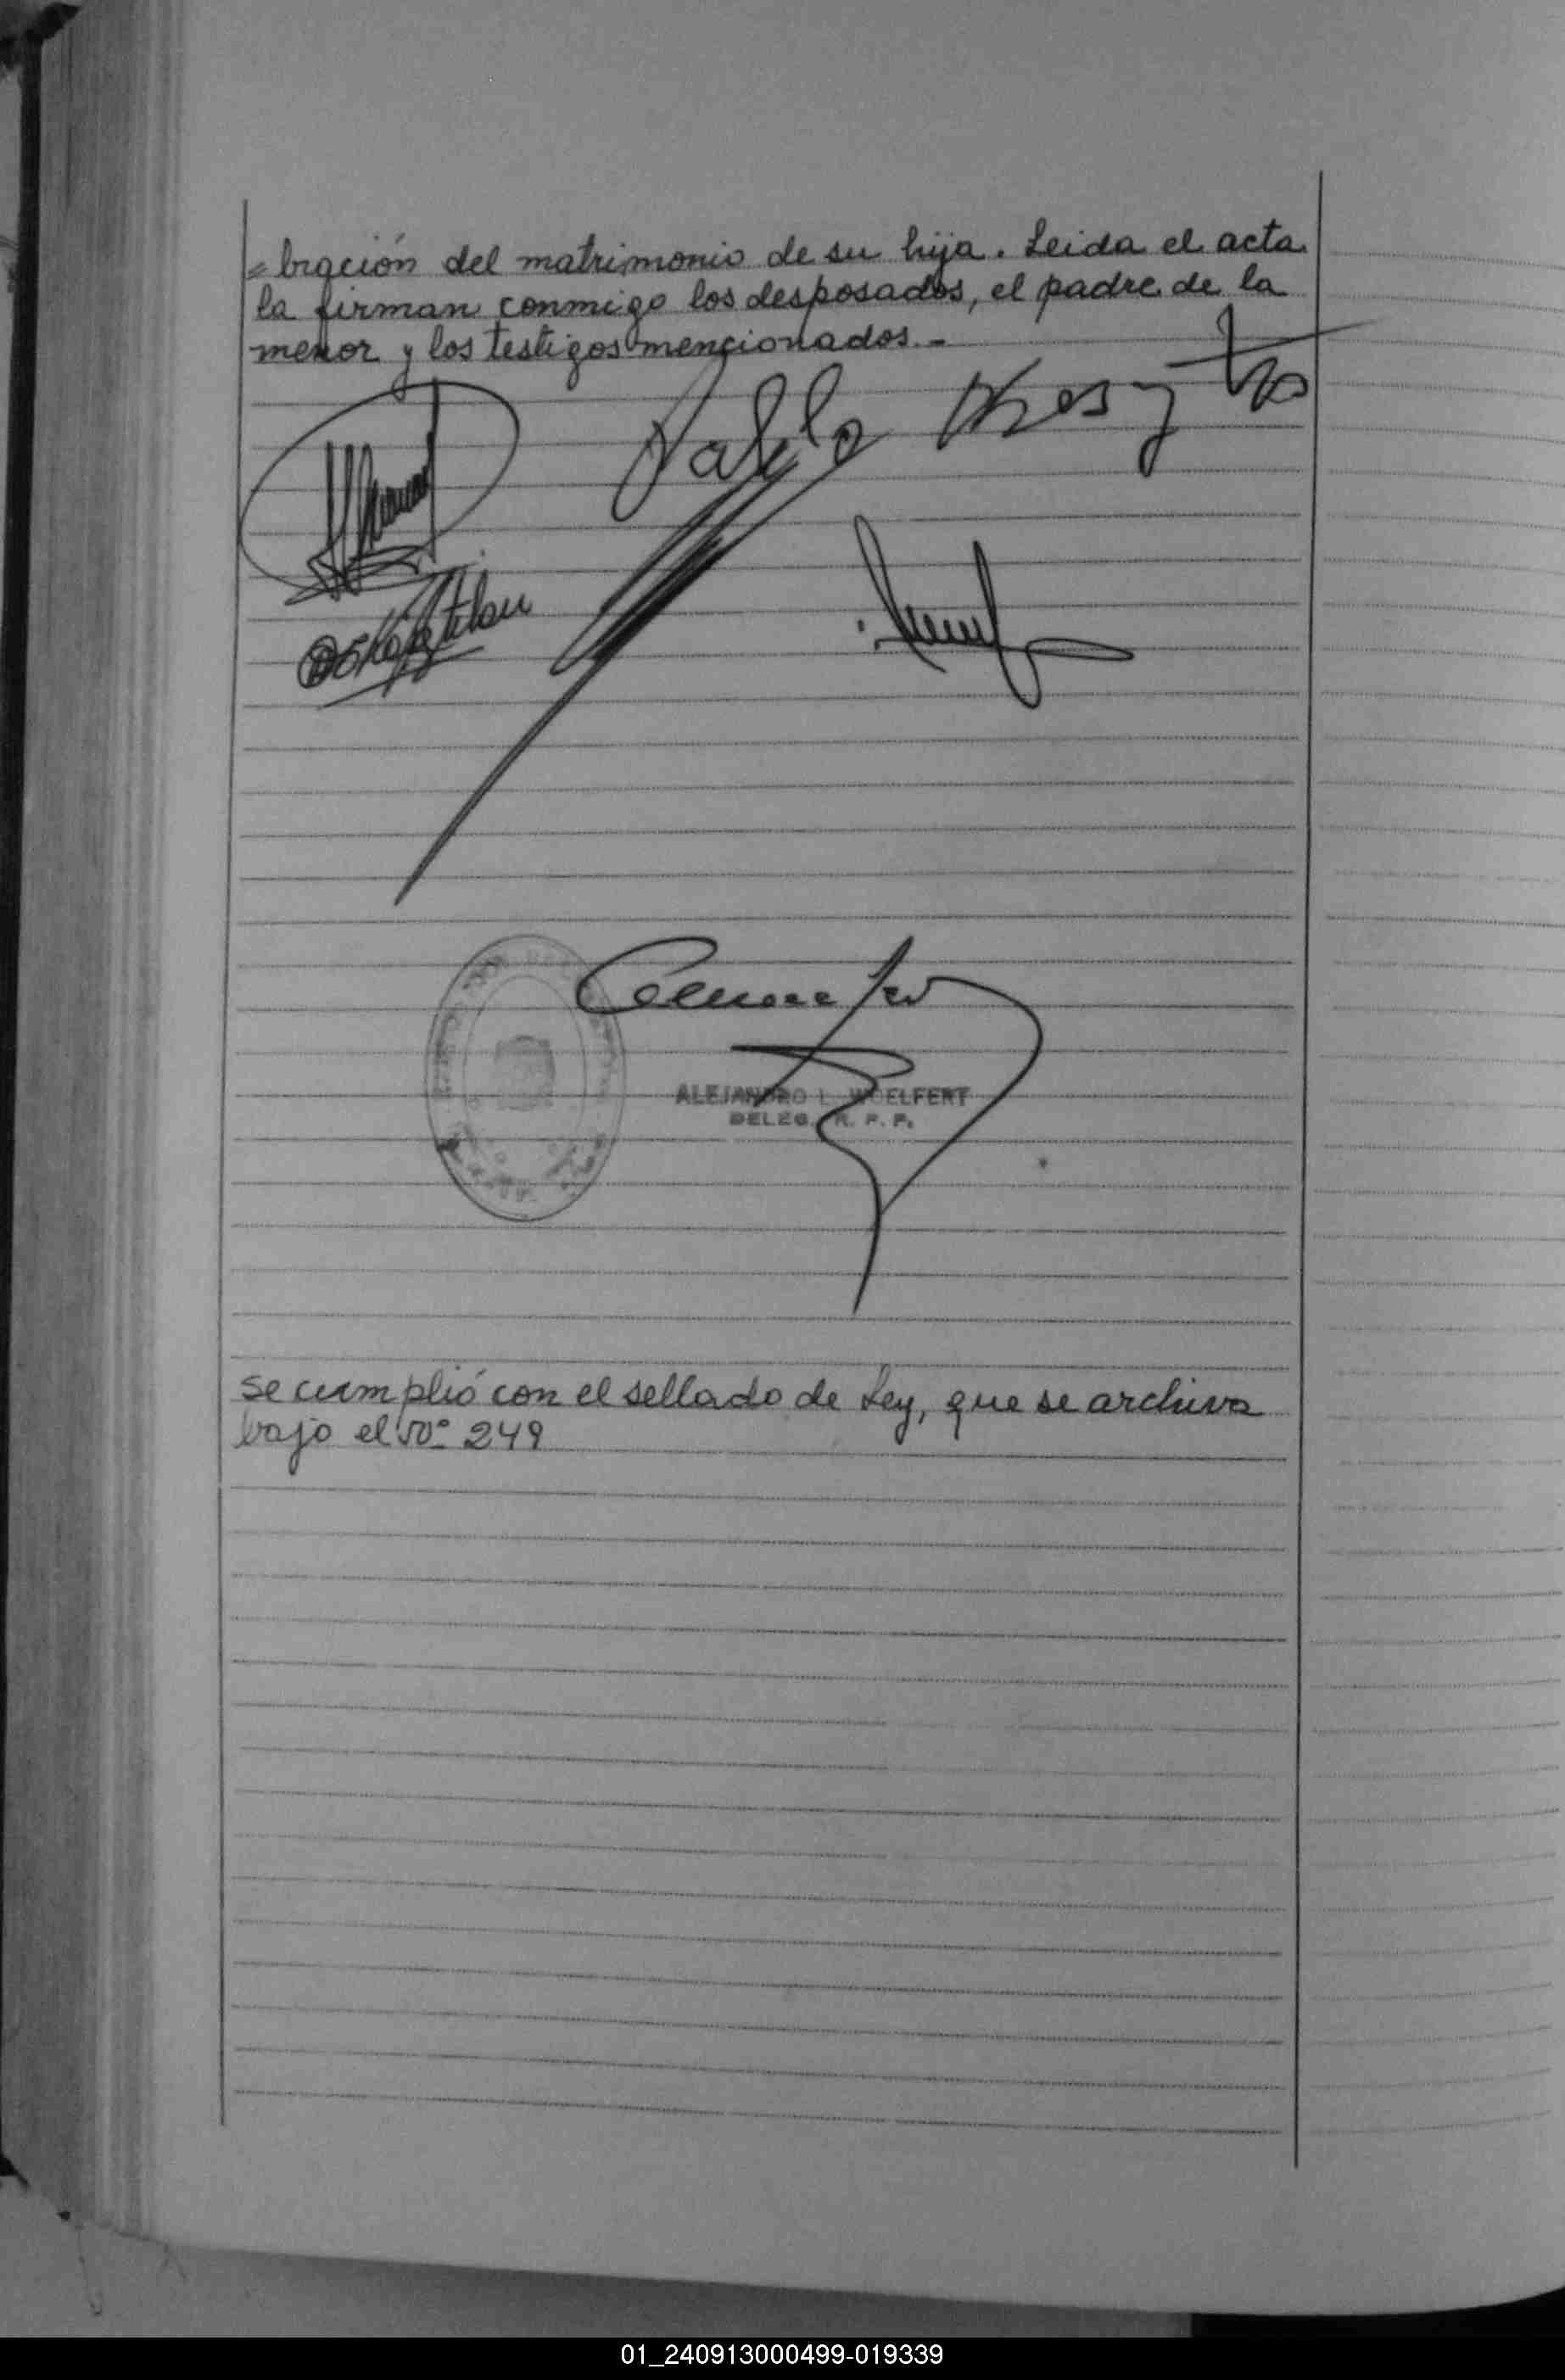 = bración del matrimonio de su hija. Leida el acta
la firman conmigo los desposados, el padre de la
menor y los testigos mencionados.-
Pablo
ALEJANDRO L. WOELFERT
DELEG. R. P. P.
se cumplió con el sellado de Ley, que se archiva
bajo el Nº 249
01_240913000499-019339